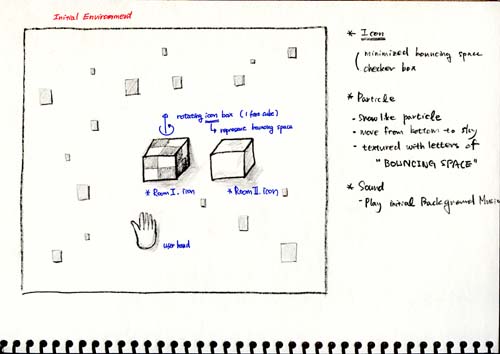 Initial Environment
rotating icon box (1 foot cube)
represent bouncing space
* Room I. icon
* Room II. icon
user hand
* Icon
minimized bouncing space
checker box
* Particle
- Snow like particle
- move from bottom to sky
- textured with letters of
"BOUNCING SPACE"
* Sound
- Play initial Background Music